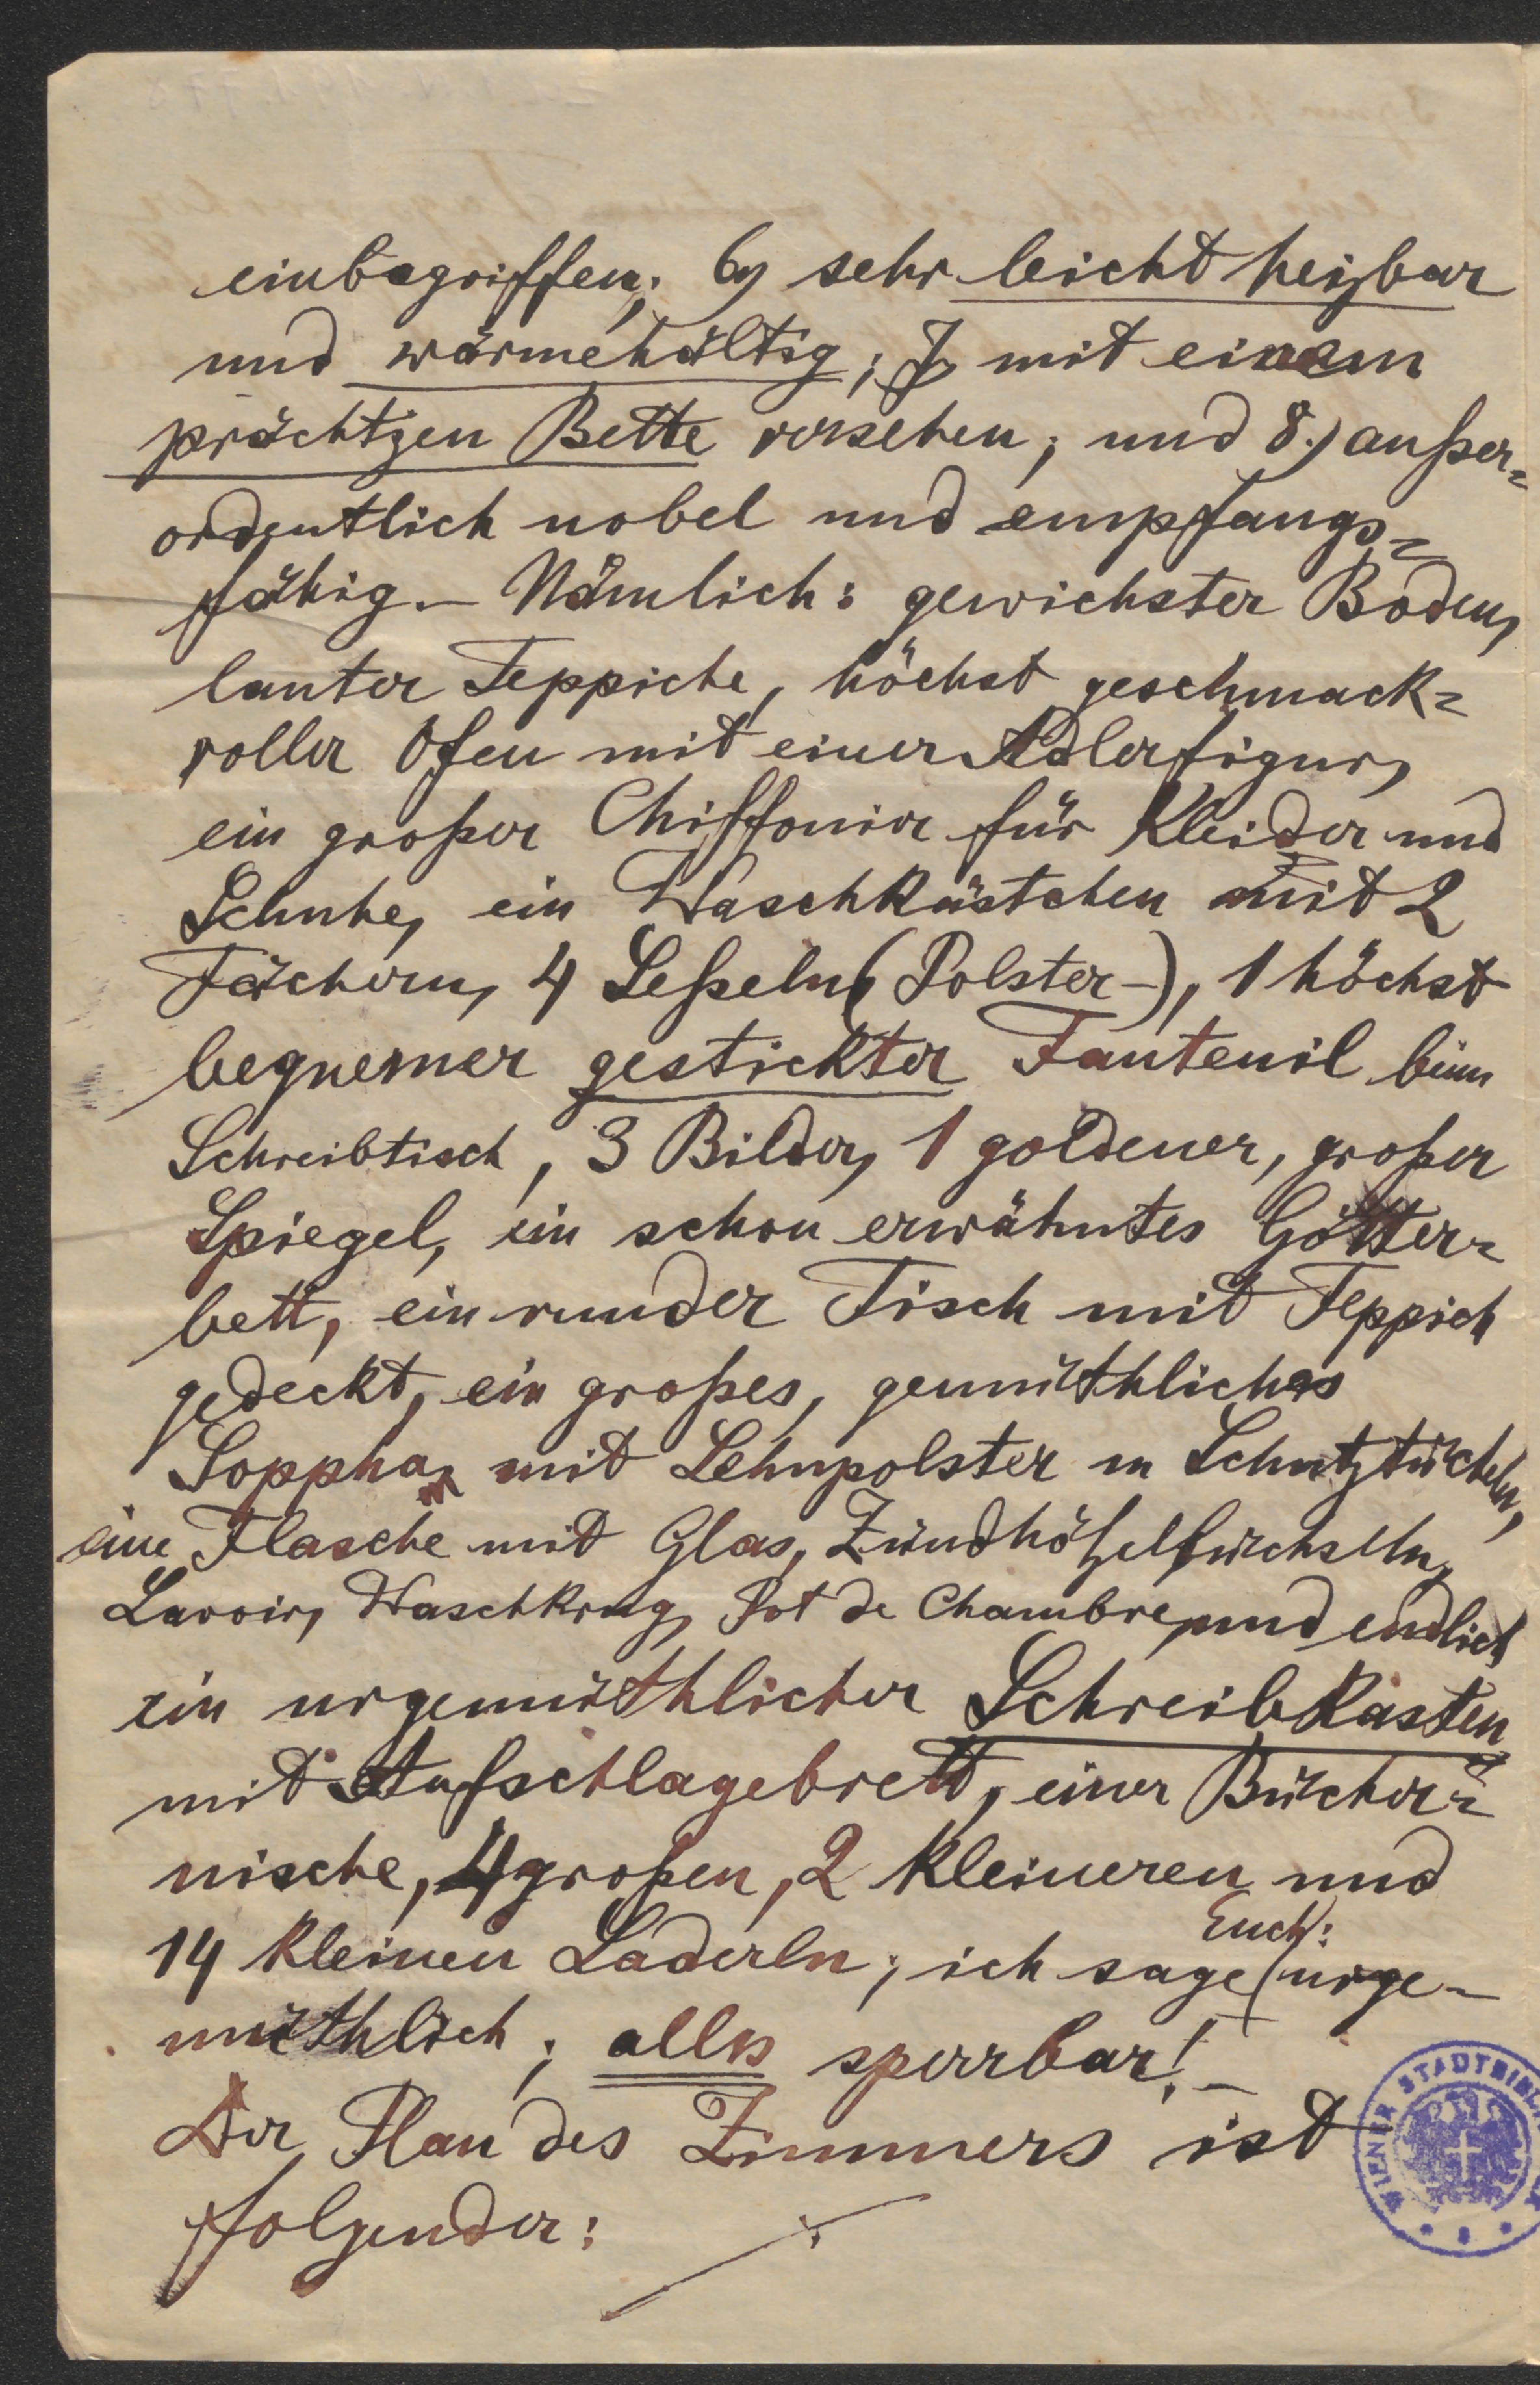 einbegriffen; 6) sehr leicht heizbar
und wärmehältig; 7) mit einem
prächtgen Bette versehen; und 8.) außer=
ordentlich nobel und empfangs=
fähig. – Nämlich: gewichster Boden,
lauter Teppiche, höchst geschmack=
voller Ofen mit einer Adlerfigur,
ein großer Chiffonier für Kleider und
Schuhe, ein Waschkästchen mit 2
Fächern, 4 Seßeln (Polster-), 1 höchst
bequemer gestickter Fauteuil beim
Schreibtisch, 3 Bilder, 1 goldener, großer
Spiegel, ein schon erwähntes Götter=
bett, ein runder Tisch mit Teppich
gedeckt, ein großes, gemüthliches
Soppha, mit Lehnpolster u Schutztücheln,
eine Flasche mit Glas, Zündhölzelbüchseln,
Lavoir, Waschkrug, Pot de Chambre, und endlich
ein urgemüthlicher Schreibkasten
mit Aufschlagebrett, einer Bücher=
nische, 4 großen, 2 kleineren und
14 kleinen Laderln; ich sage Euch: urge=
müthlich; alles sperrbar! –
Der Plan des Zimmers ist
folgender:
WIENER STADTBIBL